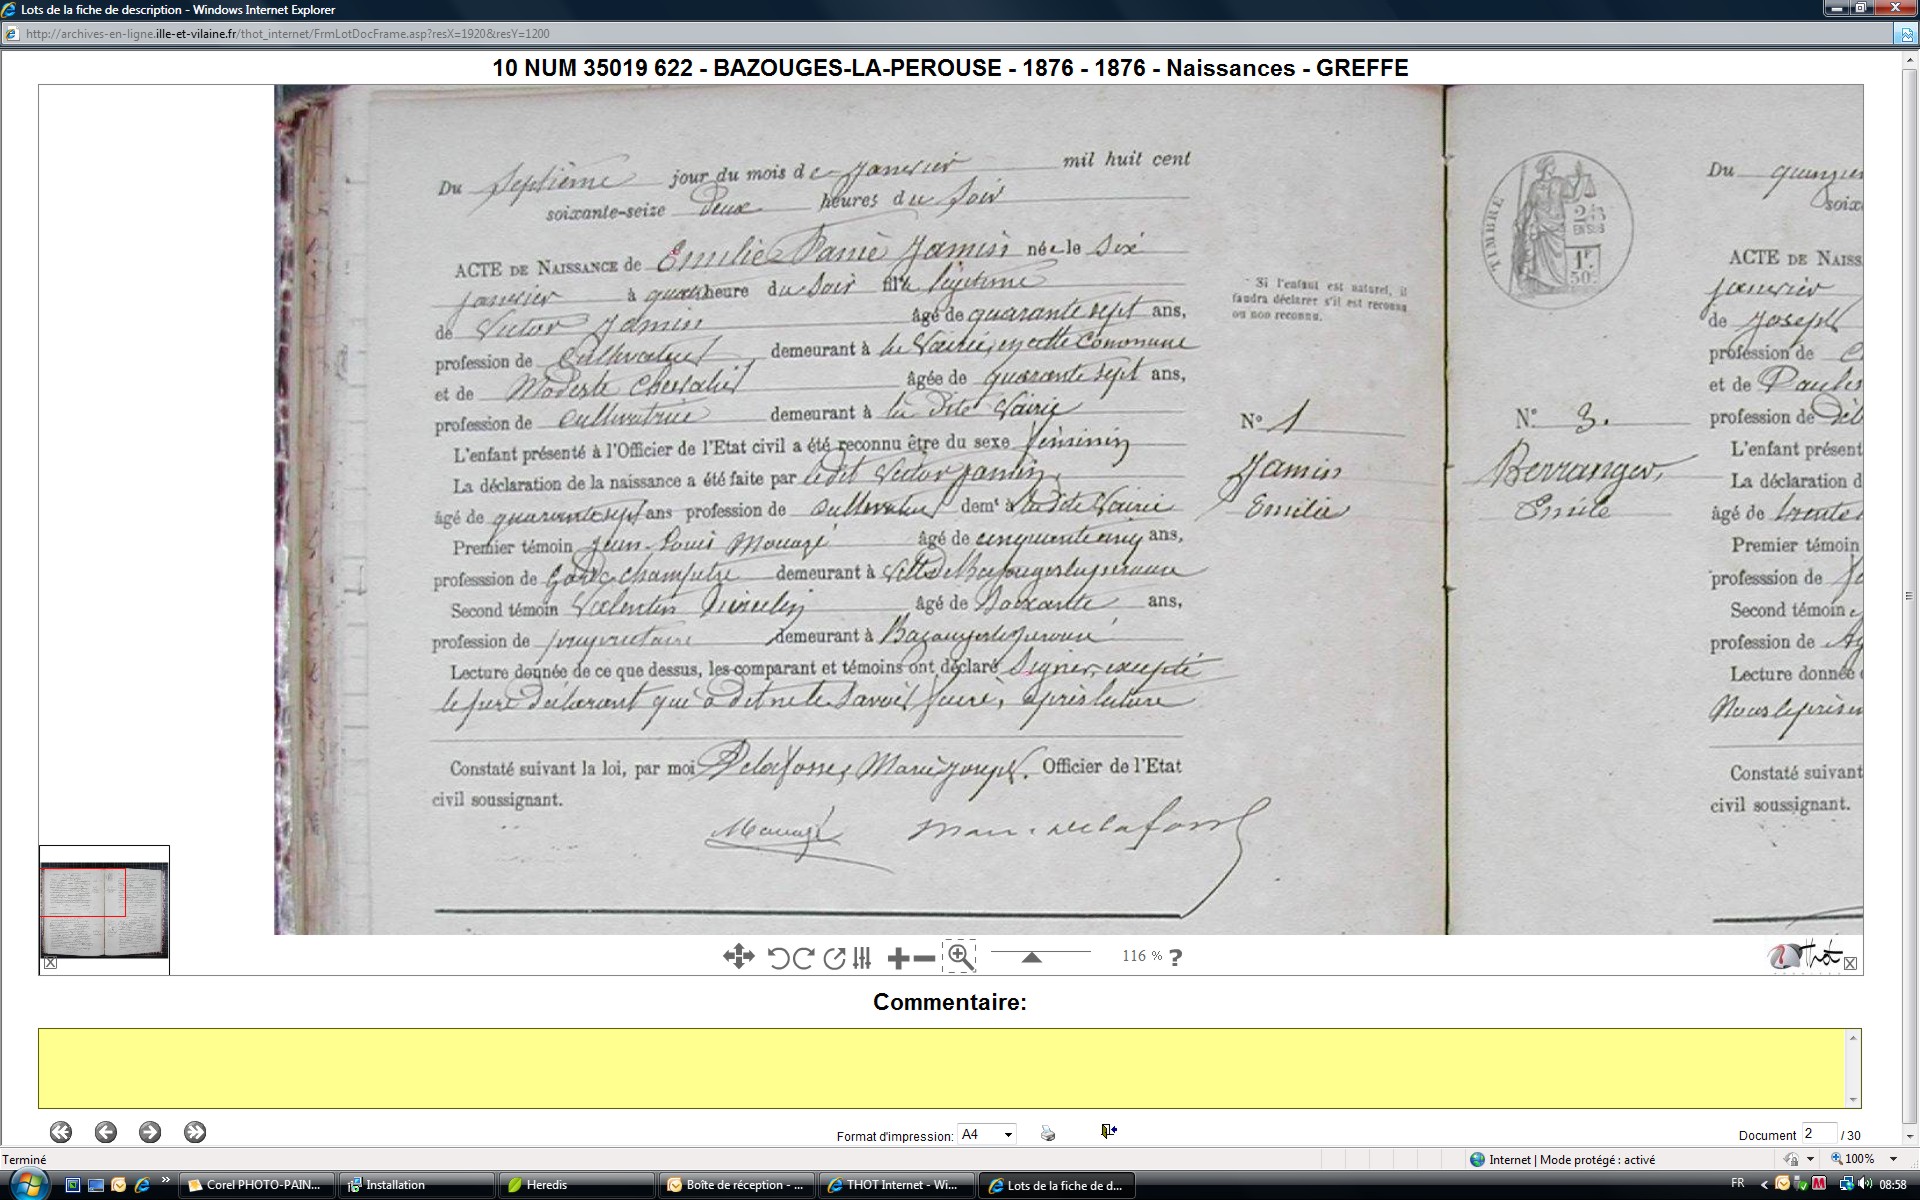 Lots de la fiche de description - Windows Internet Explorer
http://archives-en-ligne.ille-et-vilaine.fr/thot_internet/FrmLotDocFrame.asp?resX=1920&resY=1200
10 NUM 35019 622 - BAZOUGES-LA-PEROUSE - 1876 - 1876 - Naissances - GREFFE
Du septième jour du mois de janvier mil huit cent
soixante-seize deux heures du soir
ACTE DE NAISSANCE de Emilie Jamin née le six
janvier à heure du soir fille légitime
de Victor Jamin âgé de quarante sept ans,
profession de Cultivateur, demeurant à la Vairie, en cette Commune
et de Modeste Chevalier âgée de quarante sept ans,
profession de Cultivatrice demeurant à la dite Vairie
L'enfant présenté à l'Officier de l'Etat civil a été reconnu être du sexe féminin
La déclaration de la naissance a été faite par ledit Victor Jamin,
âgé de quarante sept ans profession de Cultivateur demt à la dite Vairie
Premier témoin Jean Louis Mouazé âgé de cinquante cinq ans,
professsion de Garde champêtre demeurant à Ville de Bazougeslaperouse
Second témoin Valentin âgé de Soixante ans,
profession de propriétaire demeurant à Bazougeslaperouse
Lecture donnée de ce que dessus, les comparant et témoins ont déclaré signer, excepté
le père déclarant qui a dit ne le savoir faire, après lecture
Constaté suivant la loi, par moi Delafosse, Marie Joseph. Officier de l'Etat
civil soussignant.
Mouazé Marie Delafosse
Si l'enfant est naturel, il
faudra déclarer s'il est reconnu
ou non reconnu.
N° 1
Jamin
Emilie
TIMBRE
EN SUS
1F
50C
N° 3.
Berranger,
Emile
Du quinzie
soix
ACTE DE NAISS
janvier
de Joseph
profession de C
et de Paul
profession de
L'enfant présent
La déclaration d
âgé de trente
Premier témoin
professsion de
Second témoin
profession de
Lecture donnée
Constaté suivant
civil soussignant.
116 % ?
Thot
Commentaire:
Format d'impression: A4
Document 2 / 30
Terminé
Internet | Mode protégé : activé
100%
Corel PHOTO-PAIN...
Installation
Heredis
Boîte de réception - ...
THOT Internet - Wi...
Lots de la fiche de d...
FR
08:58